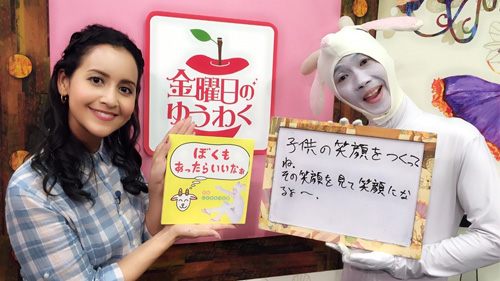 金曜日の
ゆうわく
ぼくも
あったらいいなぁ
子供の笑顔をつくって
ね、
その笑顔を見て笑顔にな
るよ〜、